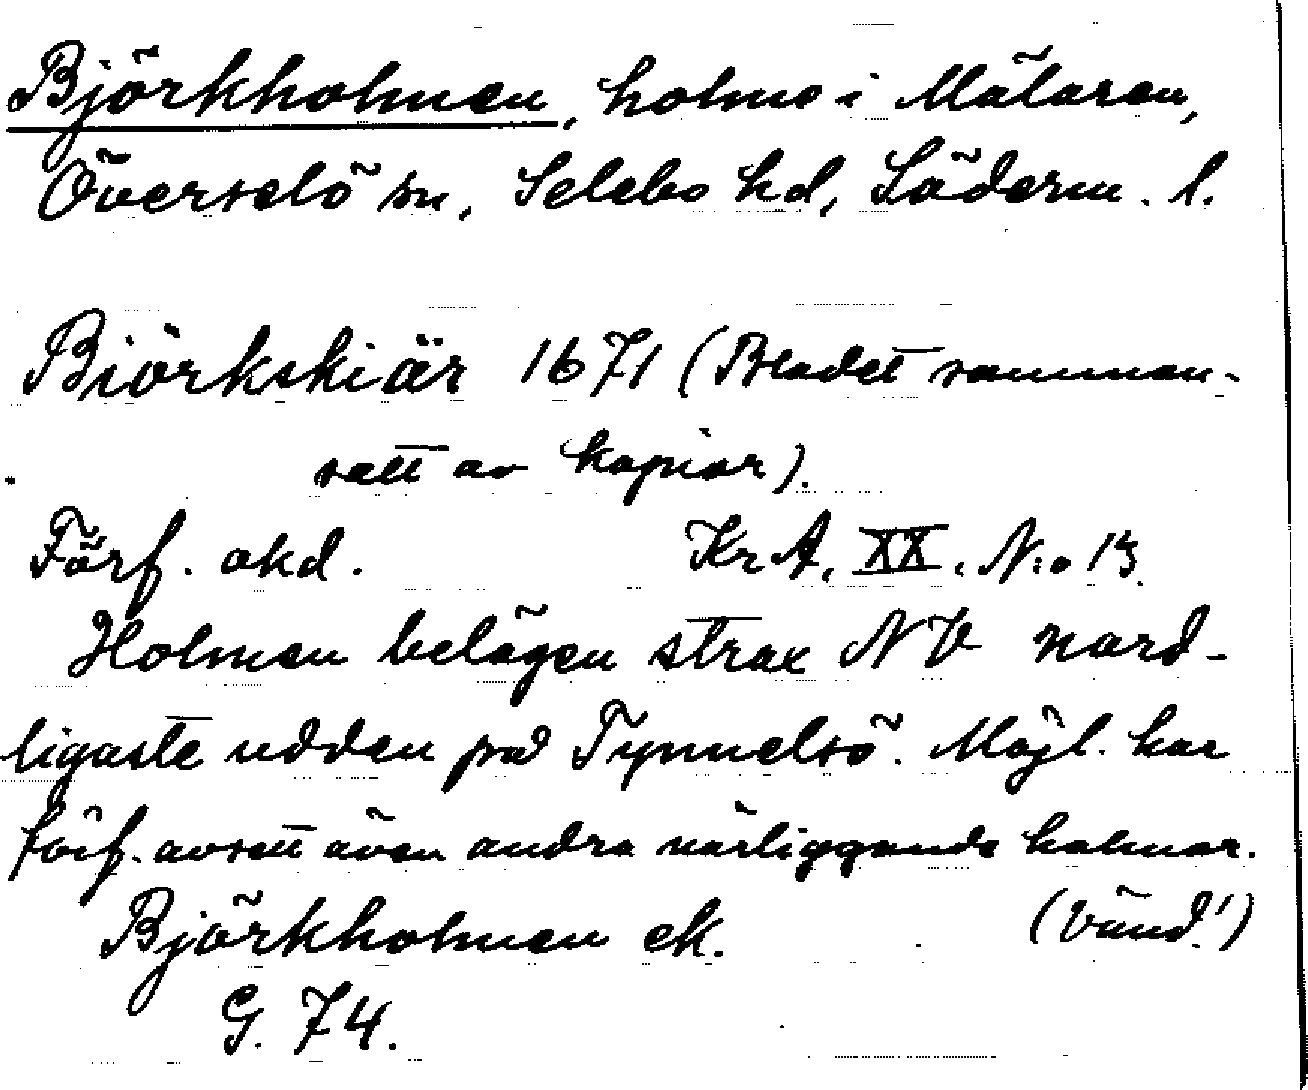 Björkholmen, holme i Mälaren,
Överselö sn, Selebo hd, Söderm. l.
Biörkskiär 1671 (Bladet samman-
satt av kopior).
Förf. okd. KrA, XX, N:o 13
Holmen belägen strax NV nord-
ligaste udden på Tynnelsö. Möjl. har
förf. avsett även andra närliggande holmar.
Björkholmen ek. (Vänd!)
G. 74.